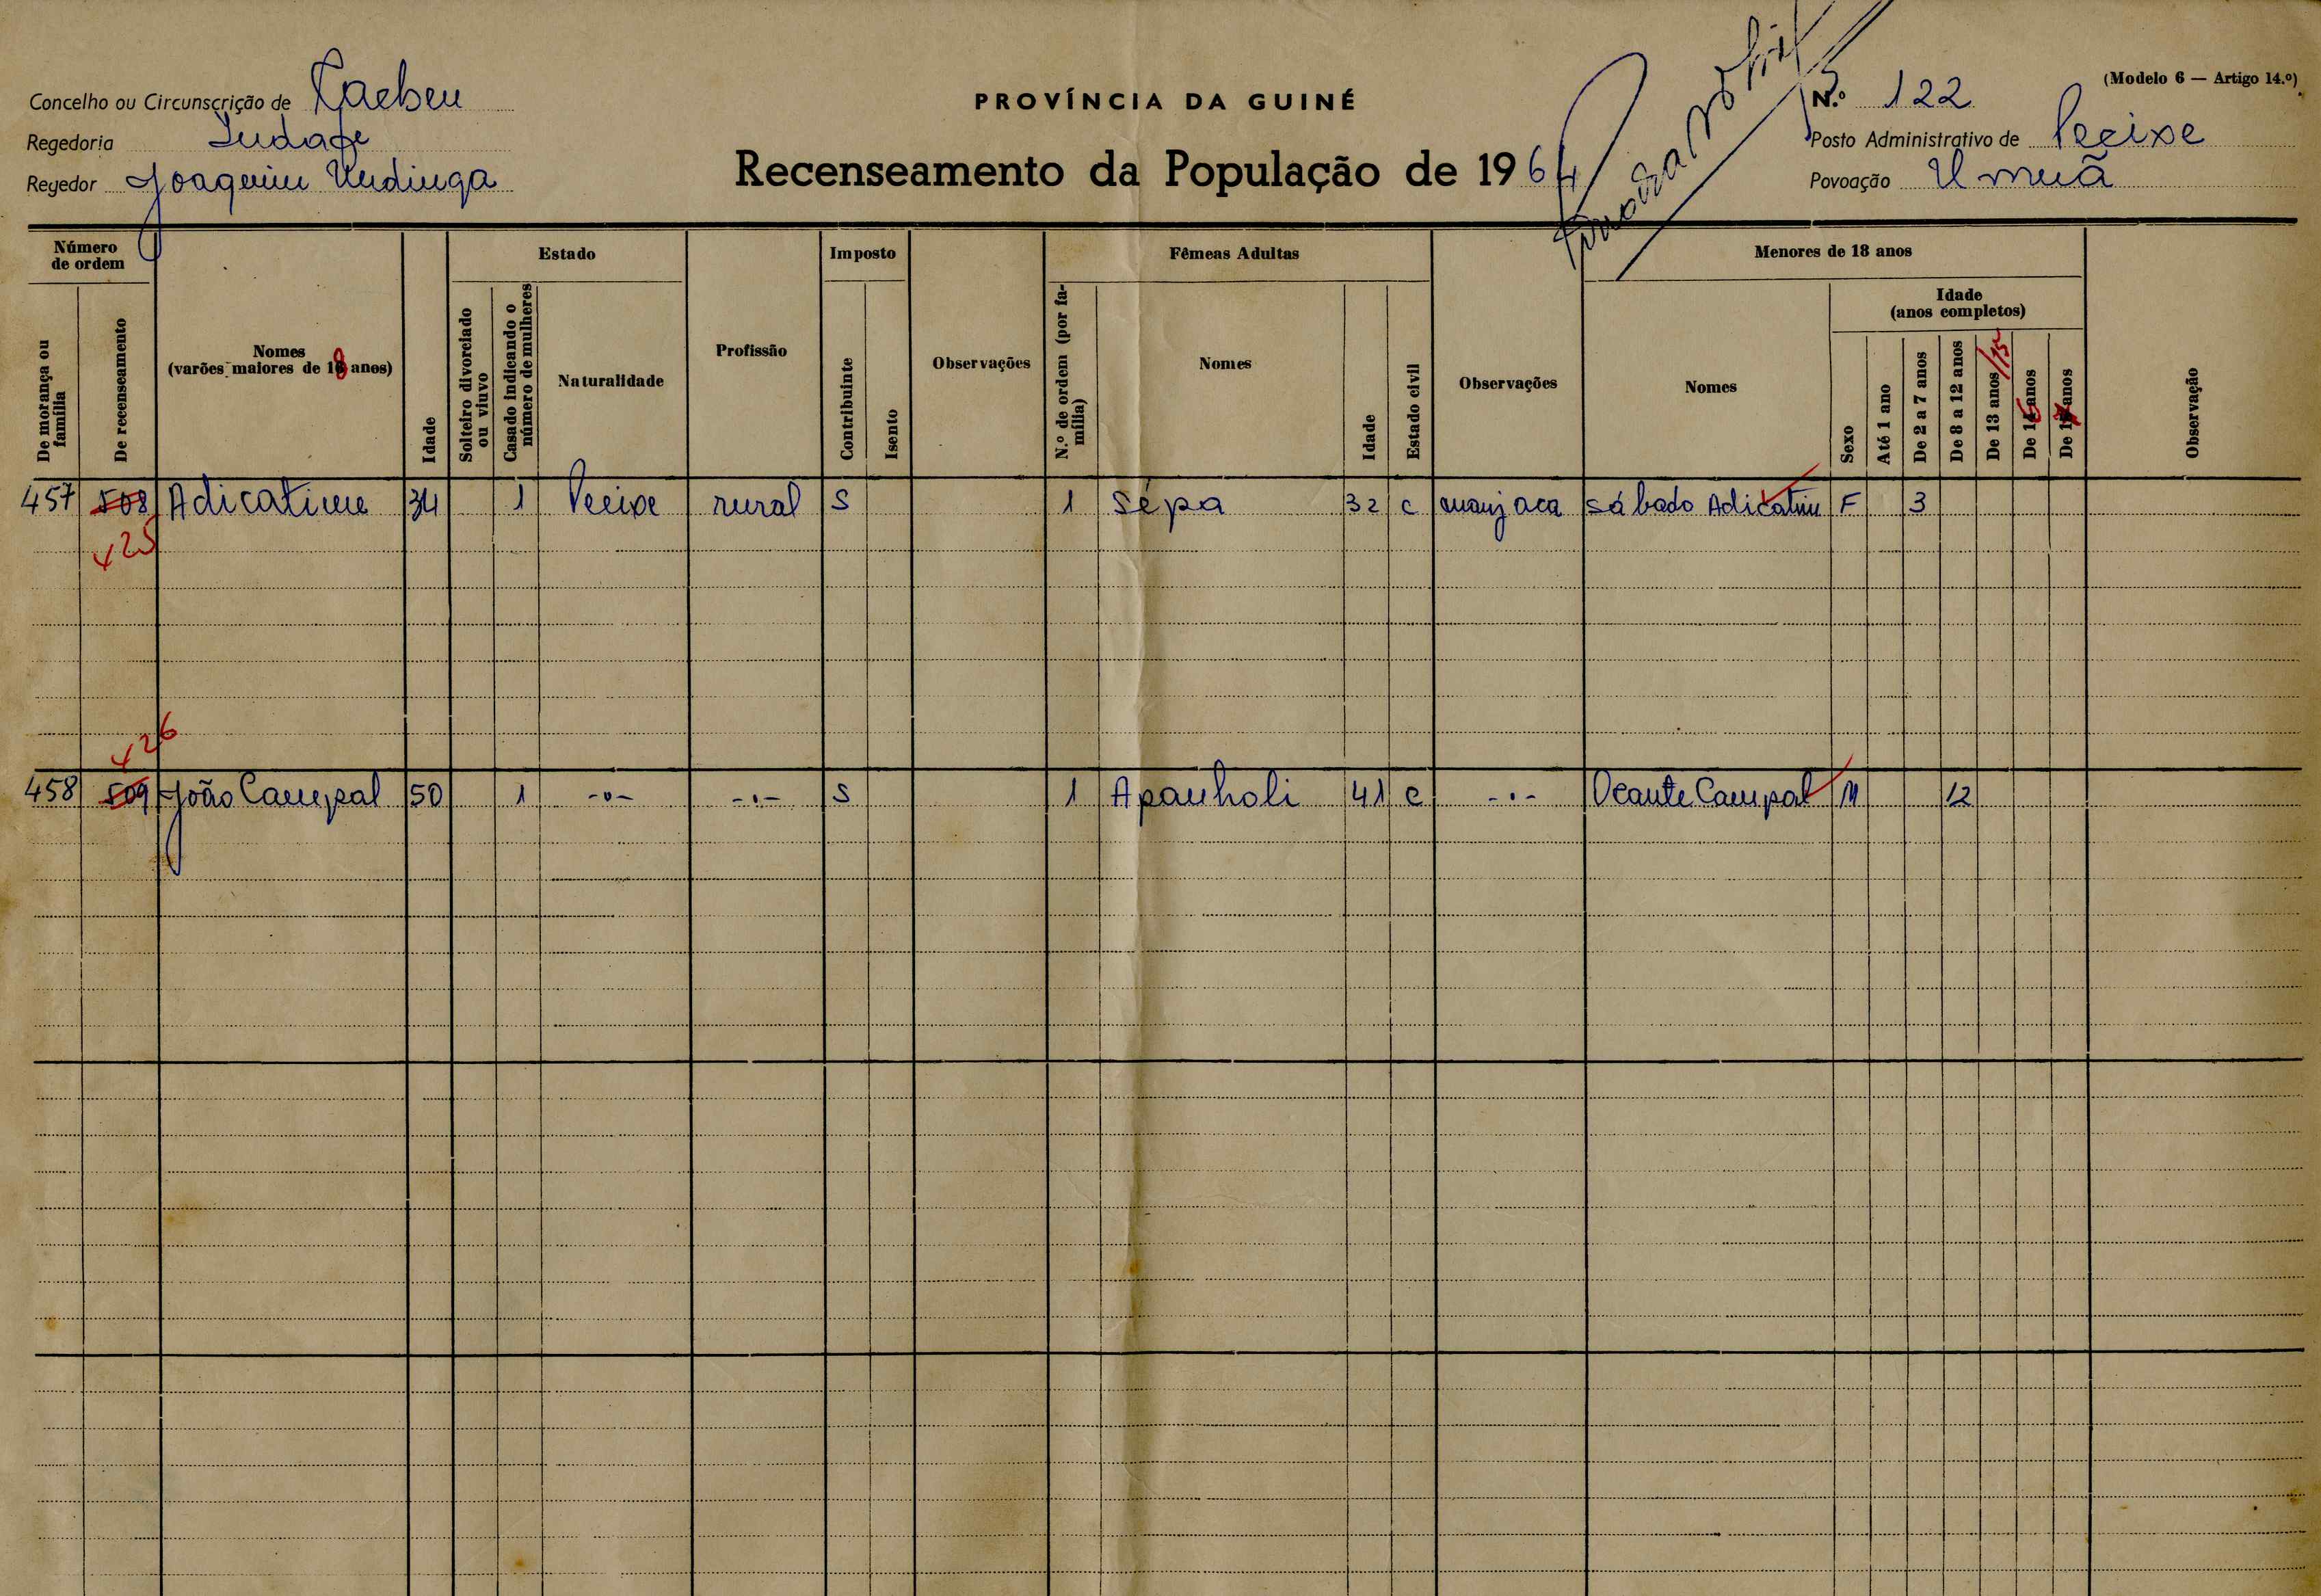 (Modelo 6 — Artigo 14.º)
Concelho ou Circunscrição de
PROVÍNCIA DA GUINÉ
N.º 122
Regedoria
Posto Administrativo de Pecixe
Regedor Joaquim
Recenseamento da População de 1964
Povoação
Número de ordem
De morança ou família
De recenseamento
Nomes
(varões maiores de 18 anos)
Idade
Estado
Solteiro divorciado ou viuvo
Casado indicando o número de mulheres
Naturalidade
Profissão
Imposto
Contribuinte
Isento
Observações
Fêmeas Adultas
N.º de ordem (por família)
Nomes
Idade
Estado civil
Observações
Menores de 18 anos
Nomes
Sexo
Idade
(anos completos)
Até 1 ano
De 2 a 7 anos
De 8 a 12 anos
De 13 anos /15
De 16 anos
De 17 anos
Observação
457 508 Adicatime 34 1 Pecixe rural S 1 Sépa 32 c manjaca sábado Adicatim F 3
425
426
458 509 João Campal 50 1 -o- -.- S 1 Apanholi 41 c -.- Ocante Campal M 12